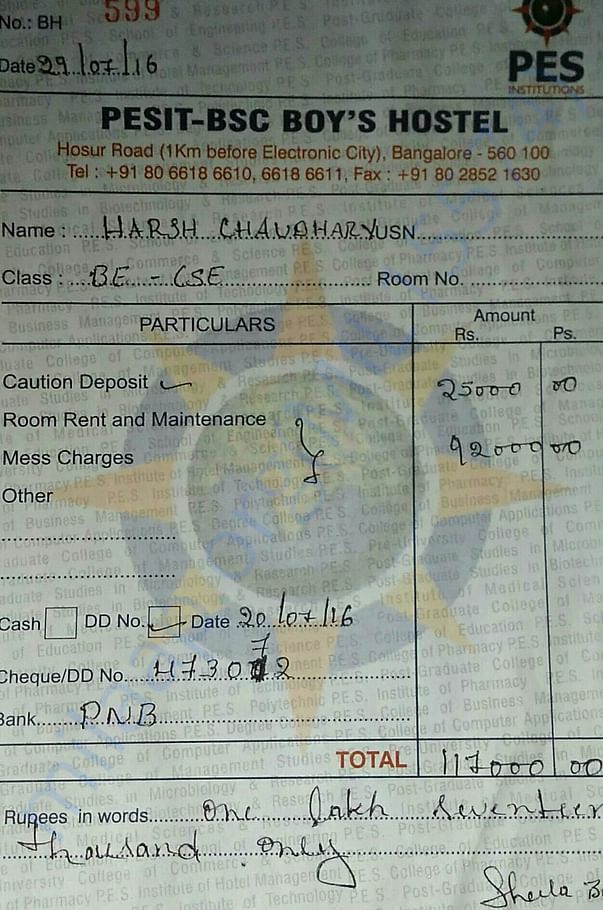 No.: BH 599
Date 29/07/16
PES
INSTITUTIONS
PESIT-BSC BOY'S HOSTEL
Hosur Road (1Km before Electronic City), Bangalore - 560 100
Tel : +91 80 6618 6610, 6618 6611, Fax : +91 80 2852 1630
Name : HARSH CHAUDHARY USN
Class : BE - CSE Room No.
PARTICULARS Amount
Rs. Ps.
Caution Deposit 25000 00
Room Rent and Maintenance
Mess Charges 92000 00
Other
Cash DD No. Date 20/07/16
Cheque/DD No. 473072
Bank PNB
TOTAL 117000 00
Rupees in words One lakh seventeen
thousand only
Sheila